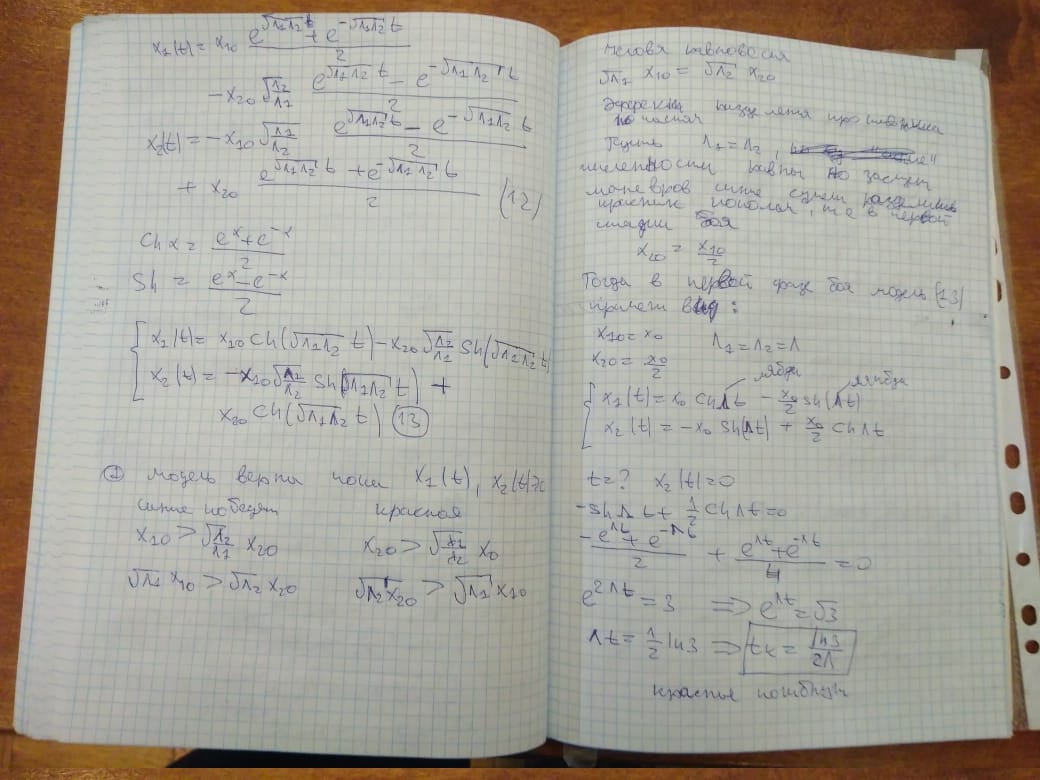 x₁(t) = x₁₀ (e^{√(Λ₁Λ₂) t} + e^{-√(Λ₁Λ₂) t})/2
- x₂₀ √(Λ₂/Λ₁) (e^{√(Λ₁Λ₂) t} - e^{-√(Λ₁Λ₂) t})/2
x₂(t) = - x₁₀ √(Λ₁/Λ₂) (e^{√(Λ₁Λ₂) t} - e^{-√(Λ₁Λ₂) t})/2
+ x₂₀ (e^{√(Λ₁Λ₂) t} + e^{-√(Λ₁Λ₂) t})/2 (12)
Ch α = (e^α + e^{-α})/2
Sh = (e^α - e^{-α})/2
x₁(t) = x₁₀ Ch(√(Λ₁Λ₂) t) - x₂₀ √(Λ₂/Λ₁) Sh(√(Λ₁Λ₂) t)
x₂(t) = - x₁₀ √(Λ₁/Λ₂) Sh(√(Λ₁Λ₂) t) +
x₂₀ Ch(√(Λ₁Λ₂) t) (13)
модель верна пока x₁(t), x₂(t) ≥ 0
синие победят красная
x₁₀ > √(Λ₂/Λ₁) x₂₀ x₂₀ > √(Λ₁/Λ₂) x₀
√Λ₁ x₁₀ > √Λ₂ x₂₀ √Λ₂ x₂₀ > √Λ₁ x₁₀
условя равновесия
√Λ₁ x₁₀ = √Λ₂ x₂₀
по частям
Пусть Λ₁ = Λ₂,
численности равны но засчет
маневров синие сумели разделить
красных пополам, т е в первой
стадии боя
x₂₀ = x₁₀/2
Тогда в первой фазе боя модель (13)
примет вид:
x₁₀ = x₀ Λ₁ = Λ₂ = Λ
x₂₀ = x₀/2
лябда лямбда
x₁(t) = x₀ Ch Λt - x₀/2 Sh(Λt)
x₂(t) = -x₀ Sh(Λt) + x₀/2 Ch Λt
t = ? x₂(t) = 0
-Sh Λt + 1/2 Ch Λt = 0
(-e^{Λt} + e^{-Λt})/2 + (e^{Λt} + e^{-Λt})/4 = 0
e^{2Λt} = 3 ⇒ e^{Λt} = √3
Λt = 1/2 ln3 ⇒ tк = ln3/2Λ
красные погибнут